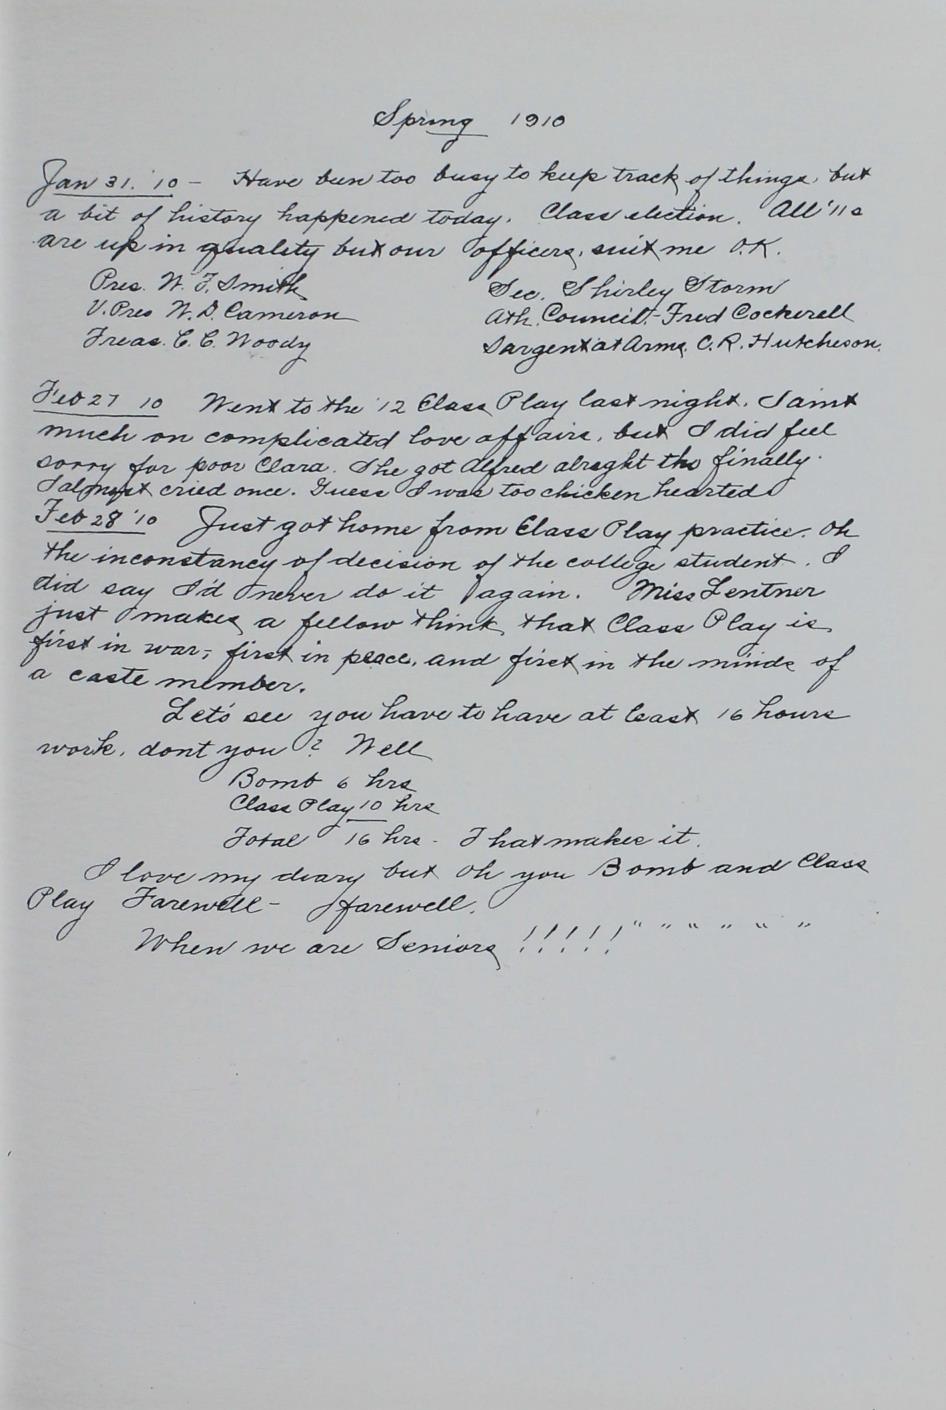 Spring 1910
Jan 31. '10 - Have been too busy to keep track of things, but
a bit of history happened today. Class election. All '11s
are up in quality but our officers, suit me O.K.
Pres. W. F. Smith
V. Pres W. D. Cameron
Treas. C. C. Woody
Sec. Shirley Storm
Ath. Council - Fred Cockerell
Sargent at Arms. C. R. Hutcheson.
Feb 27 10 Went to the '12 Class Play last night. I aint
much on complicated love affairs, but I did feel
sorry for poor Clara. She got Alfred alreght tho finally.
I almost cried once. Guess I was too chicken hearted
Feb 28 '10 Just got home from Class Play practice. Oh
the inconstancy of decision of the college student. I
did say I'd never do it again. Miss Lentner
just makes a fellow think that Class Play is
first in war, first in peace, and first in the minds of
a caste member.
Let's see you have to have at least 16 hours
work, dont you? Well
Bomb 6 hrs
Class Play 10 hrs
Total 16 hrs - That makes it.
I love my diary but oh you Bomb and Class
Play Farewell - farewell.
When we are Seniors !!!!! " " " " " "